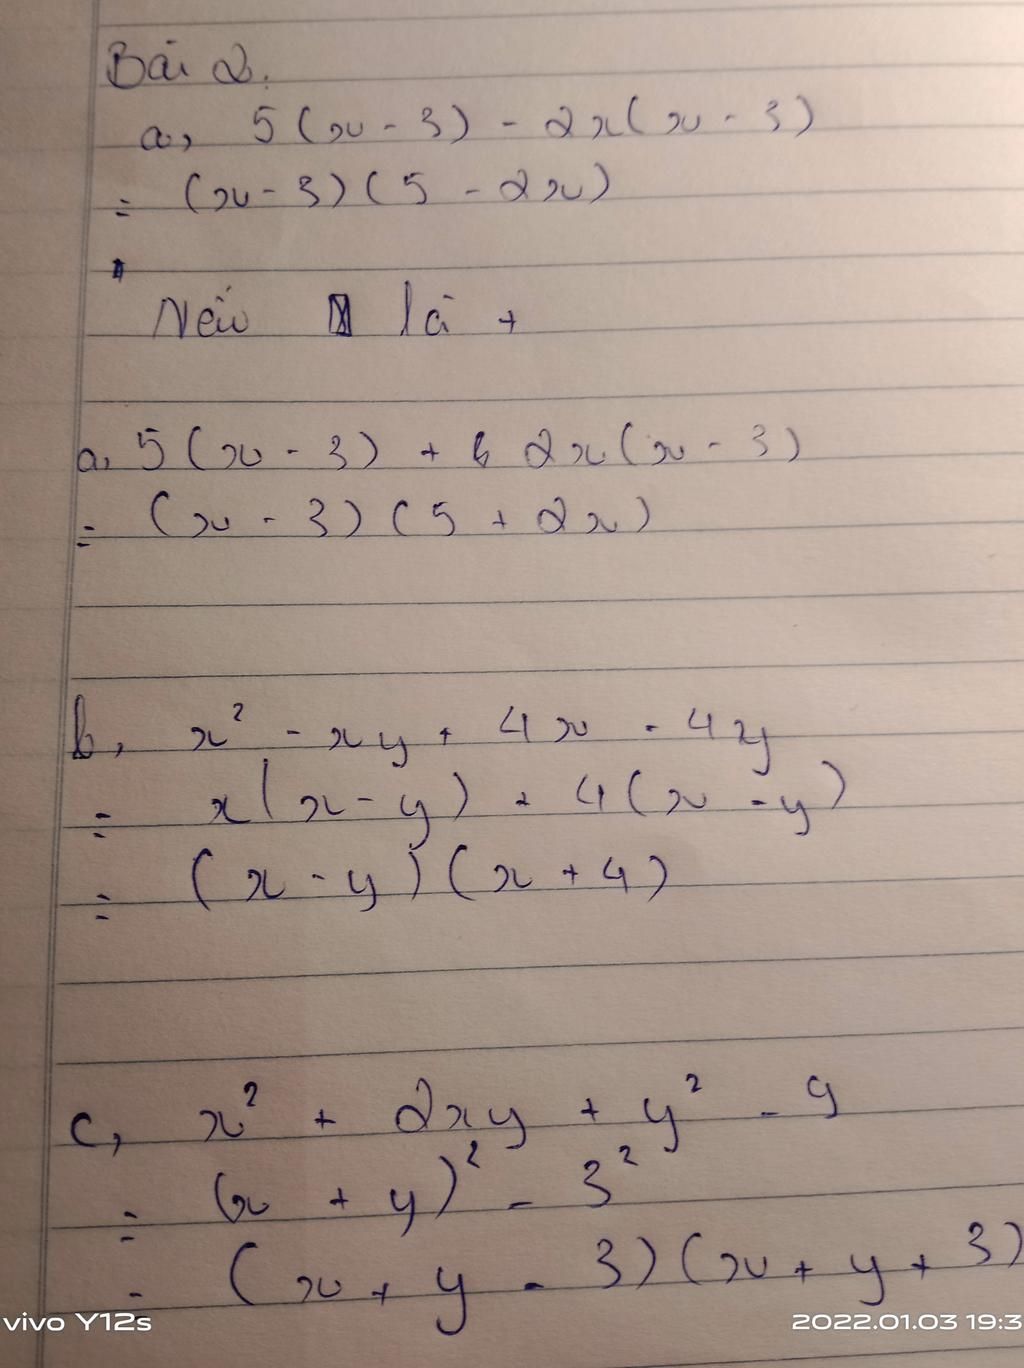 Bài 2.
a, 5(x - 3) - 2x(x - 3)
= (x - 3)(5 - 2x)
Nếu là +
a, 5(x - 3) + 2x(x - 3)
= (x - 3)(5 + 2x)
b, x² - xy + 4x - 4y
= x(x - y) + 4(x - y)
= (x - y)(x + 4)
c, x² + 2xy + y² - 9
= (x + y)² - 3²
= (x + y - 3)(x + y + 3)
vivo Y12s
2022.01.03 19:3